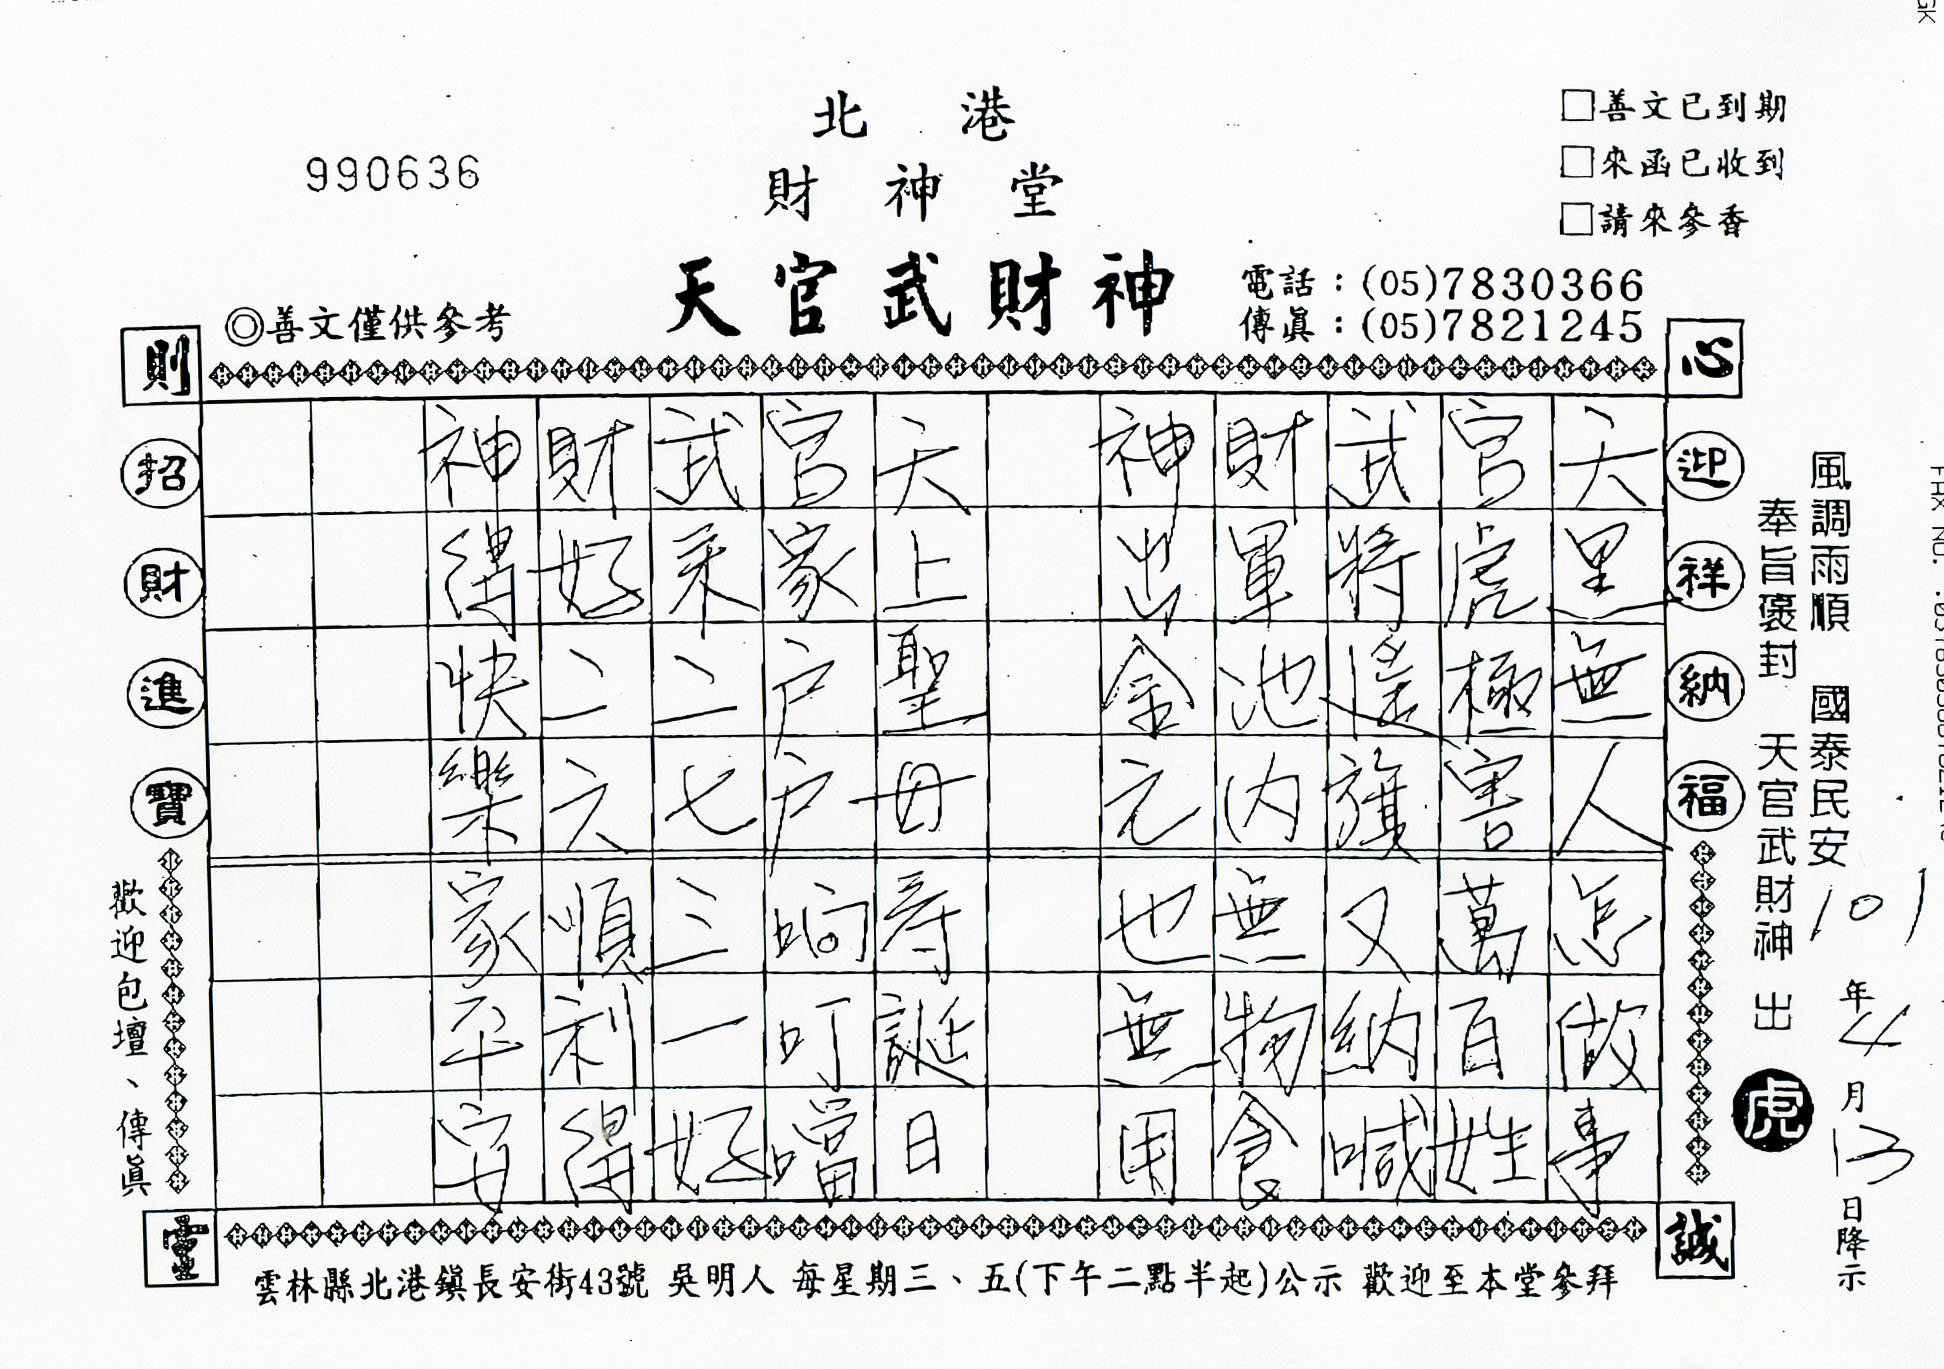 北港
財神堂
天官武財神
990636
□善文已到期
□來函已收到
□請來參香
電話：(05)7830366
傳眞：(05)7821245
◎善文僅供參考
心誠則靈
迎祥納福
招財進寶
風調雨順 國泰民安
奉旨褒封 天官武財神 出
虎
101年4月13日降示
天黑無人怎做事
官虎極害萬百姓
武將遙旗又納喊
財軍池內無物食
神出金元也無用
天上聖母壽誕日
官家戶戶响叮噹
武來二七三一好
財好二六順利得
神得快樂家平安
歡迎包壇、傳眞
雲林縣北港鎮長安街43號 吳明人 每星期三、五(下午二點半起)公示 歡迎至本堂參拜